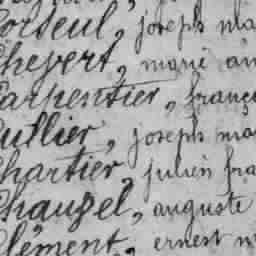 Corseul, joseph ma
Chevert, marie an
Carpentier, franço
Cullier, joseph ma
Chartier, julien fra
Chauzel, auguste
Clément, ernest m